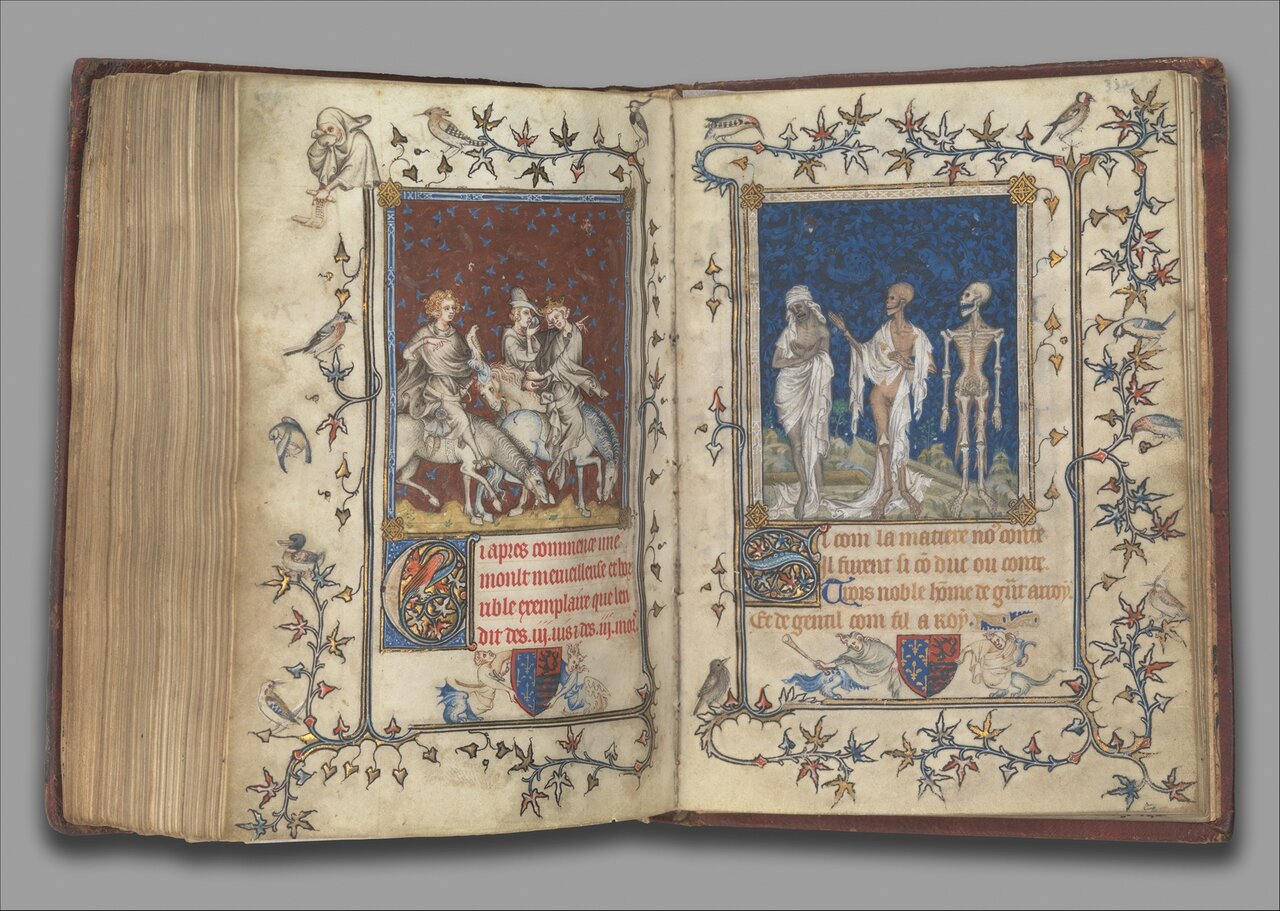 Ci apres commence une
moult merueilleuse et hor
rible exemplaire que len
dit des .iij. uis ⁊ des .iij. mor
Si com la matiere noꝰ conte
Il furent si cō duc ou conte.
Trois noble hōme de grāt arroy.
Et de gentil com fil a roy.